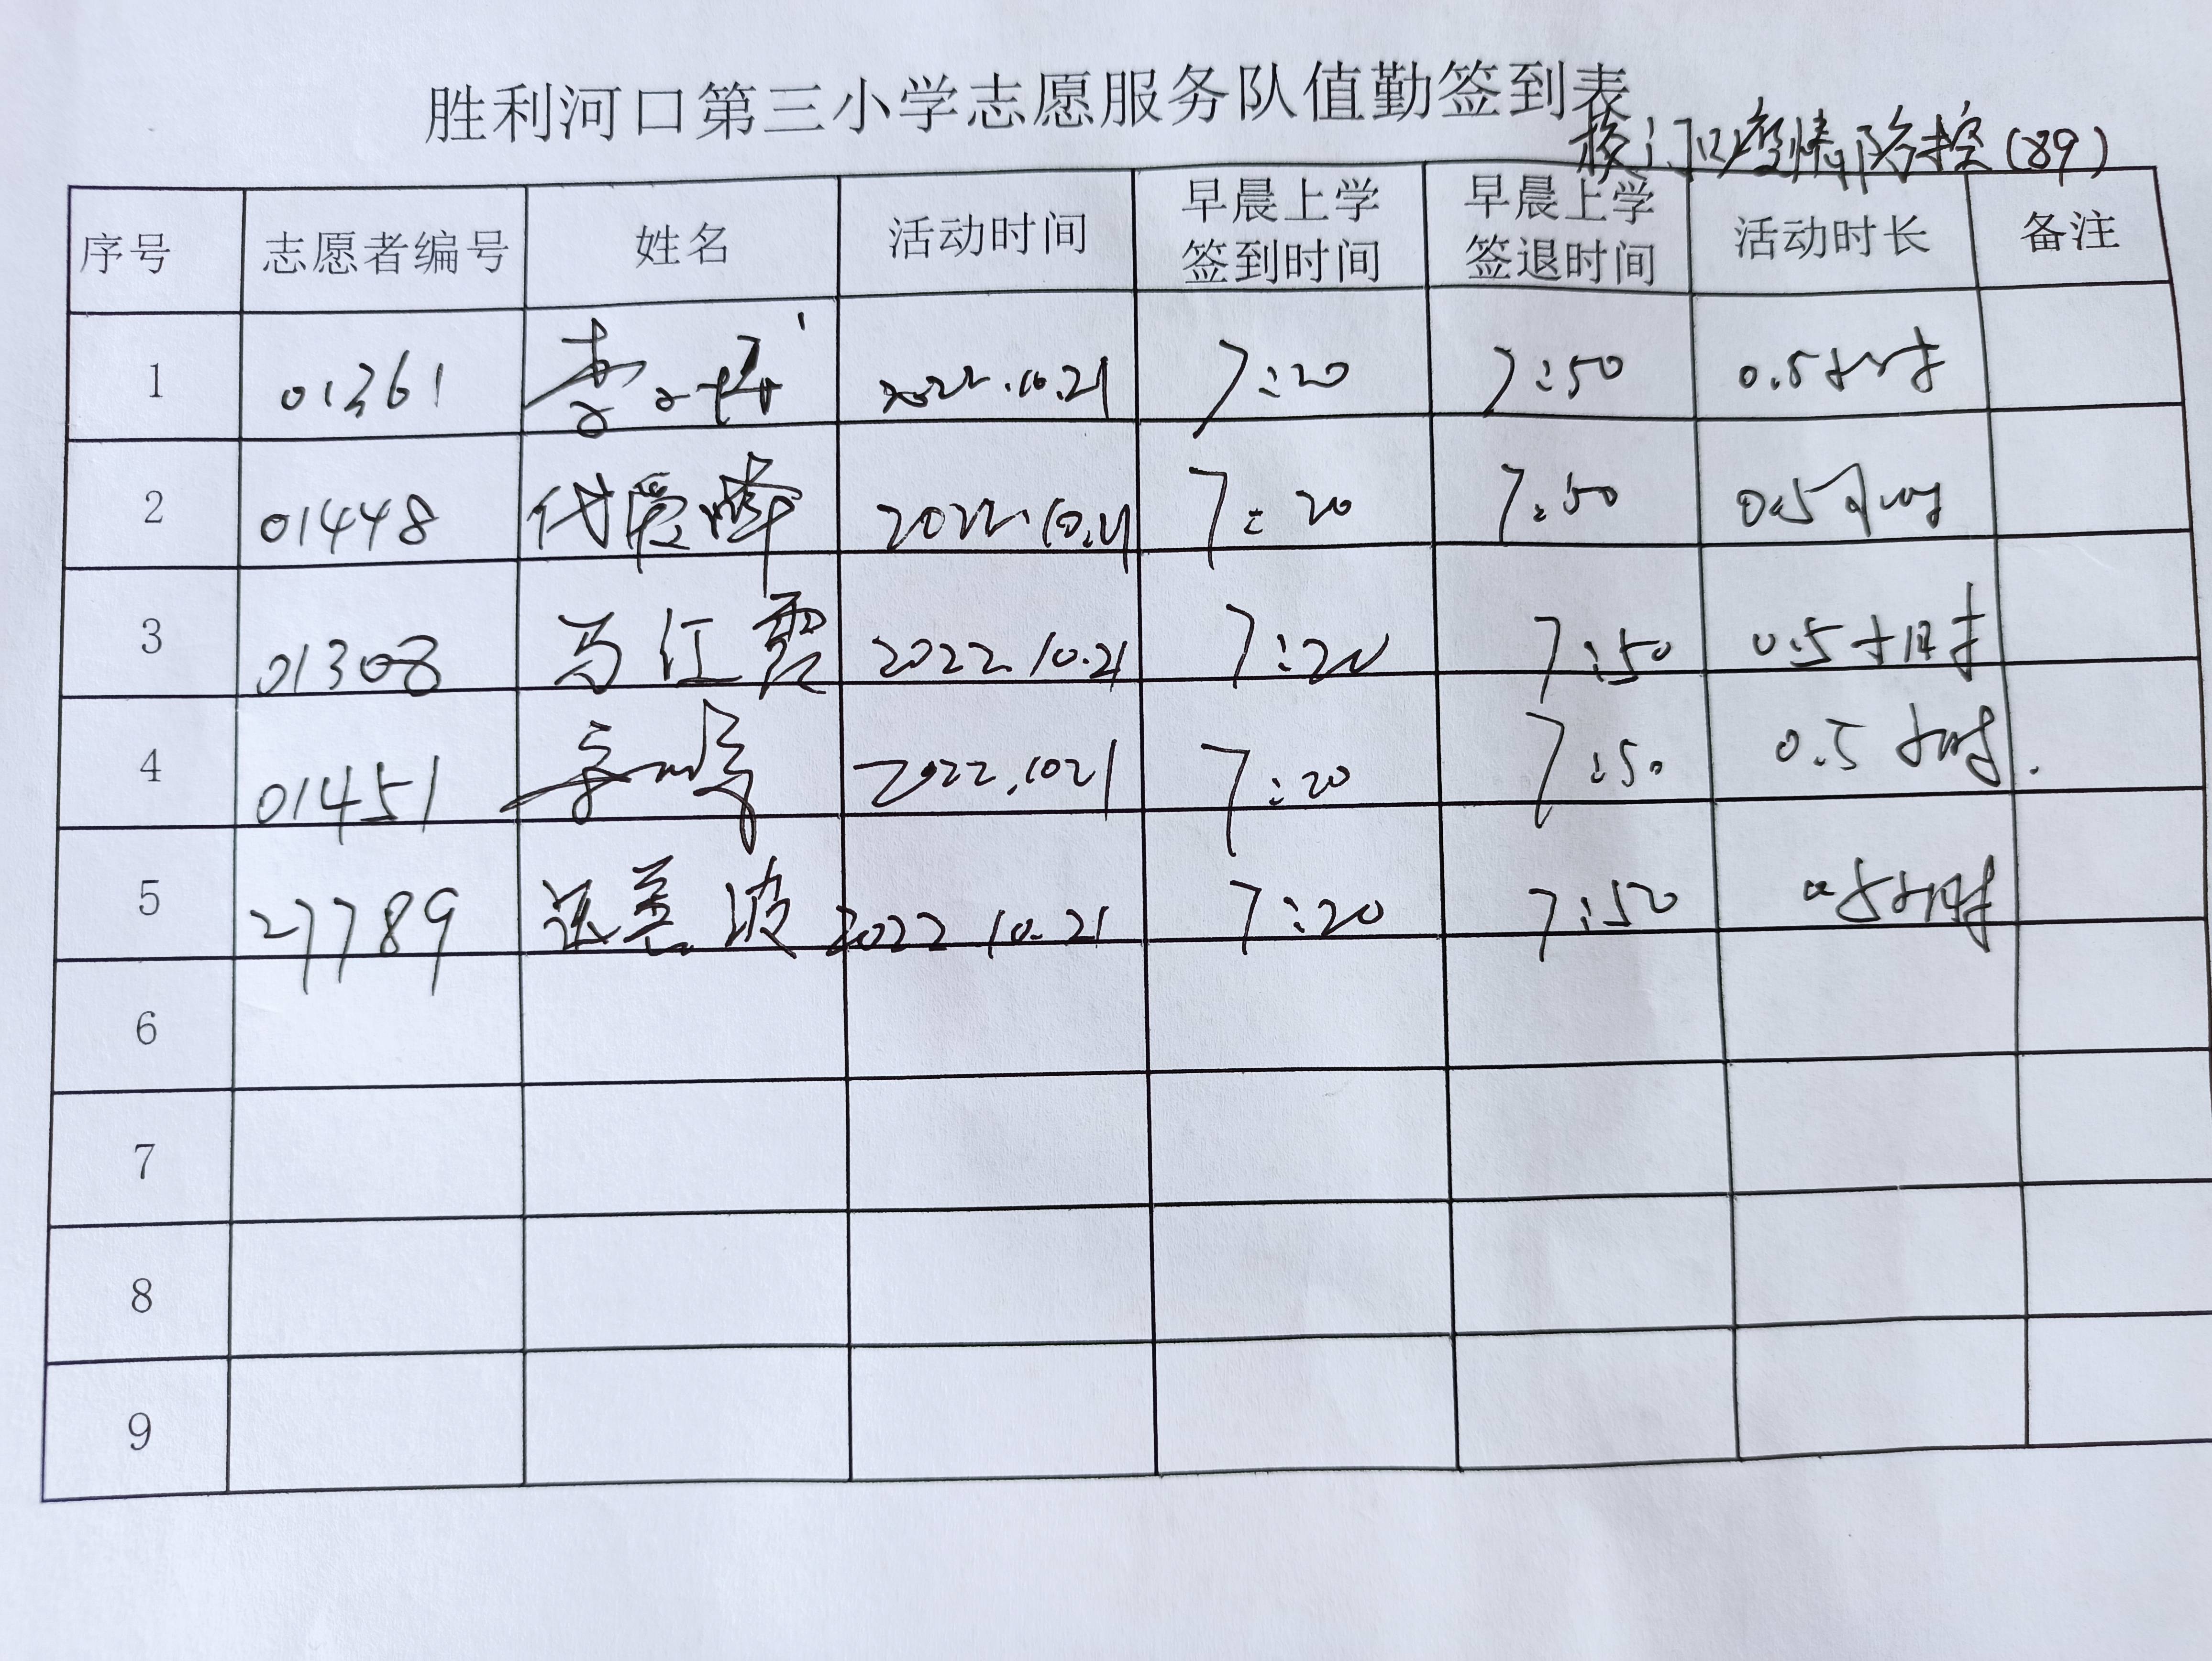 胜利河口第三小学志愿服务队值勤签到表
校门口疫情防控(89)
序号 志愿者编号 姓名 活动时间 早晨上学签到时间 早晨上学签退时间 活动时长 备注
1 01361 2022.10.21 7:20 7:50 0.5小时
2 01448 代爱峰 2022.10.21 7:20 7:50 0.5小时
3 01308 马红霞 2022.10.21 7:20 7:50 0.5小时
4 01451 2022.1021 7:20 7:50 0.5小时.
5 27789 波 2022 10.21 7:20 7:50 0.5小时
6
7
8
9